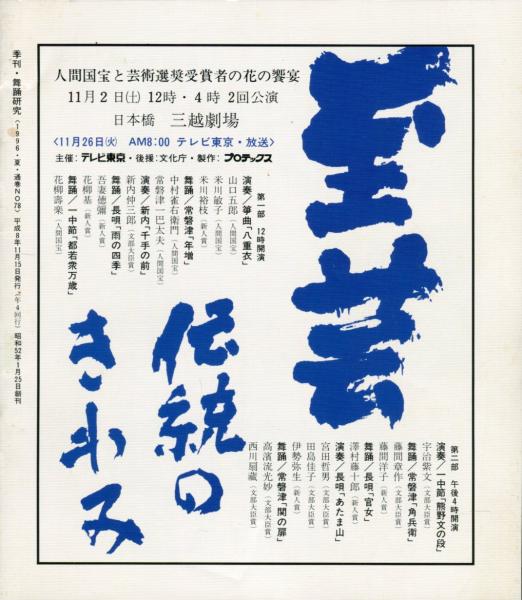 人間国宝と芸術選奨受賞者の花の饗宴
11月2日(土) 12時・4時 2回公演
日本橋 三越劇場
<11月26日(火) AM8:00 テレビ東京・放送>
主催：テレビ東京・後援：文化庁・製作：プロテックス
至芸
伝統の
きわみ
第一部 12時開演
演奏／箏曲「八重衣」
山口五郎（人間国宝）
米川敏子（人間国宝）
米川裕枝（新人賞）
舞踊／常磐津「年増」
中村雀右衛門（人間国宝）
常磐津一巴太夫（人間国宝）
演奏／新内「千手の前」
新内仲三郎（文部大臣賞）
舞踊／長唄「雨の四季」
吾妻徳彌（新人賞）
花柳基（新人賞）
舞踊／一中節「都若衆万歳」
花柳壽楽（人間国宝）
第二部 午後4時開演
演奏／一中節「熊野文の段」
宇治紫文（文部大臣賞）
舞踊／常磐津「角兵衛」
藤間章作（文部大臣賞）
藤間洋子（新人賞）
舞踊／長唄「官女」
澤村藤十郎（新人賞）
演奏／長唄「あたま山」
宮田哲男（文部大臣賞）
田島佳子（文部大臣賞）
伊勢弥生（新人賞）
舞踊／常磐津「関の扉」
高濱流光妙（文部大臣賞）
西川扇藏（文部大臣賞）
季刊・舞踊研究（1996・夏・通巻NO78）平成8年11月15日発行（年4回行）昭和52年1月25日創刊